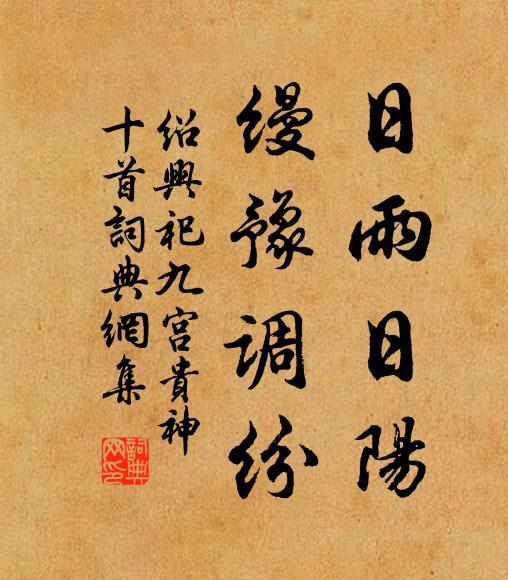 日雨日陽
缦豫调紛
绍興祀九宫貴神
十首詞典網集
詞典网印